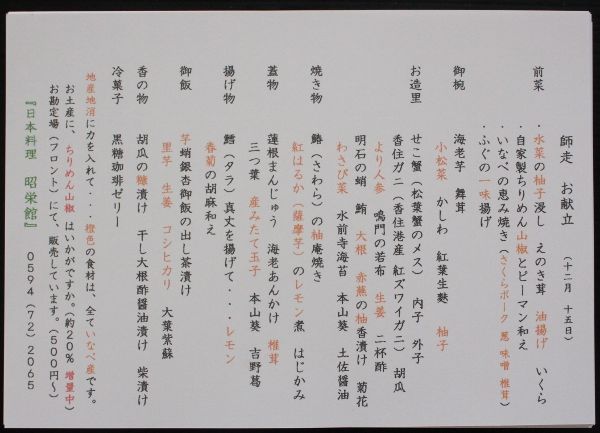 師走　お献立　（十二月　十五日）
前菜　・水菜の柚子浸し　えのき茸　油揚げ　いくら
・自家製ちりめん山椒とピーマン和え
・いなべの恵み焼き（さくらポーク　葱　味噌　椎茸）
・ふぐの一味揚げ
御椀　海老芋　舞茸
小松菜　かしわ　紅葉生麩　柚子
お造里　せこ蟹（松葉蟹のメス）　内子　外子
香住ガニ（香住港産　紅ズワイガニ）　胡瓜
より人参　鳴門の若布　生姜　二杯酢
明石の蛸　鮪　大根　赤蕪の柚香漬け　菊花
わさび菜　水前寺海苔　本山葵　土佐醤油
焼き物　鰆（さわら）の柚庵焼き
紅はるか（薩摩芋）のレモン煮　はじかみ
蓋物　蓮根まんじゅう　海老あんかけ　椎茸
三つ葉　産みたて玉子　本山葵　吉野葛
揚げ物　鱈（タラ）真丈を揚げて・・・レモン
春菊の胡麻和え
御飯　芋蛸銀杏御飯の出し茶漬け
里芋　生姜　コシヒカリ　大葉紫蘇
香の物　胡瓜の糠漬け　干し大根酢醤油漬け　柴漬け
冷菓子　黒糖珈琲ゼリー
地産地消に力を入れて・・・橙色の食材は、全ていなべ産です。
お土産に、ちりめん山椒はいかがですか。（約20％増量中）
お勘定場（フロント）にて、販売しています。（500円～）
『日本料理　昭栄館』　0594（72）2065